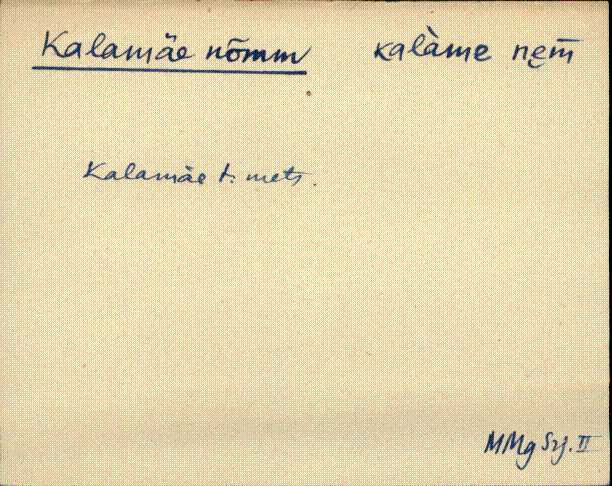 Kalamäe nõmm kalàme nęm̄
Kalamäe t. mets.
MMg Sy. II